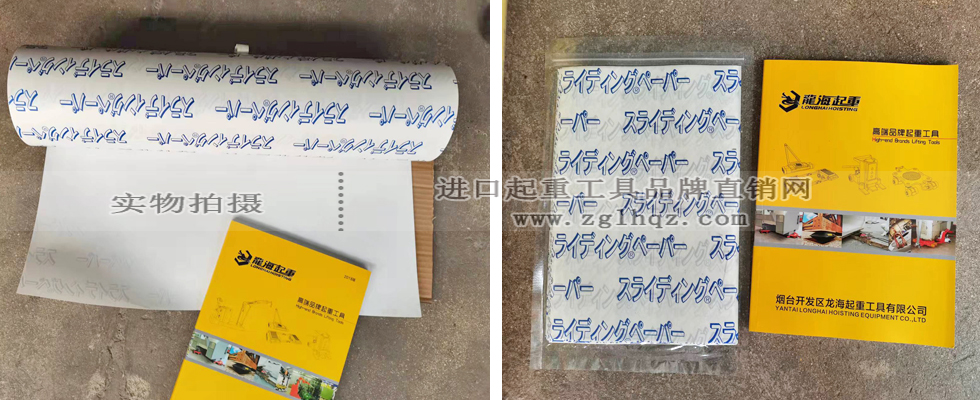 スライディングペーパー
スライディングペーパー
スライディングペーパー
スライディングペーパー
实物拍摄
龍海起重
LONGHAIHOISTING
高端品牌起重工具
High-end Brands Lifting Tools
スライディングペーパー スラ
ペーパー スライディングペーパー
スライディングペーパー スラ
ペーパー スライディングペーパー
スライディングペーパー スラ
ペーパー スライディングペーパー
スライディングペーパー スラ
龍海起重
LONGHAIHOISTING
高端品牌起重工具
High-end Brands Lifting Tools
烟台开发区龙海起重工具有限公司
YANTAI LONGHAI HOISTING EQUIPMENT CO.,LTD
进口起重工具品牌直销网
www.zglhqz.com